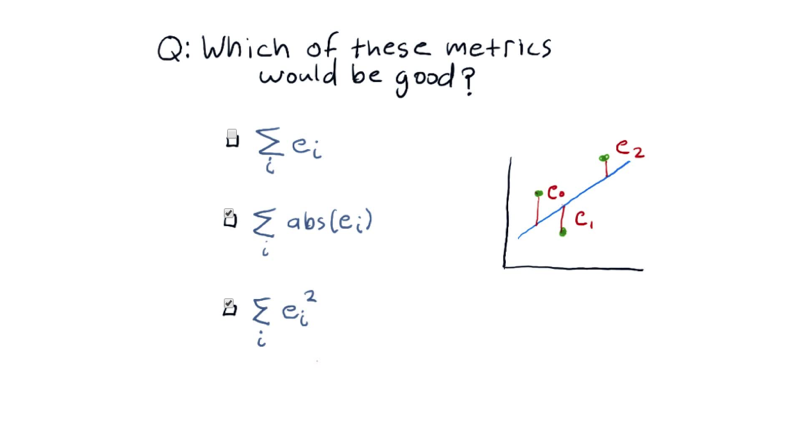 Q: Which of these metrics
would be good?
∑ᵢ eᵢ
∑ᵢ abs(eᵢ)
∑ᵢ eᵢ²
e₀
e₁
e₂